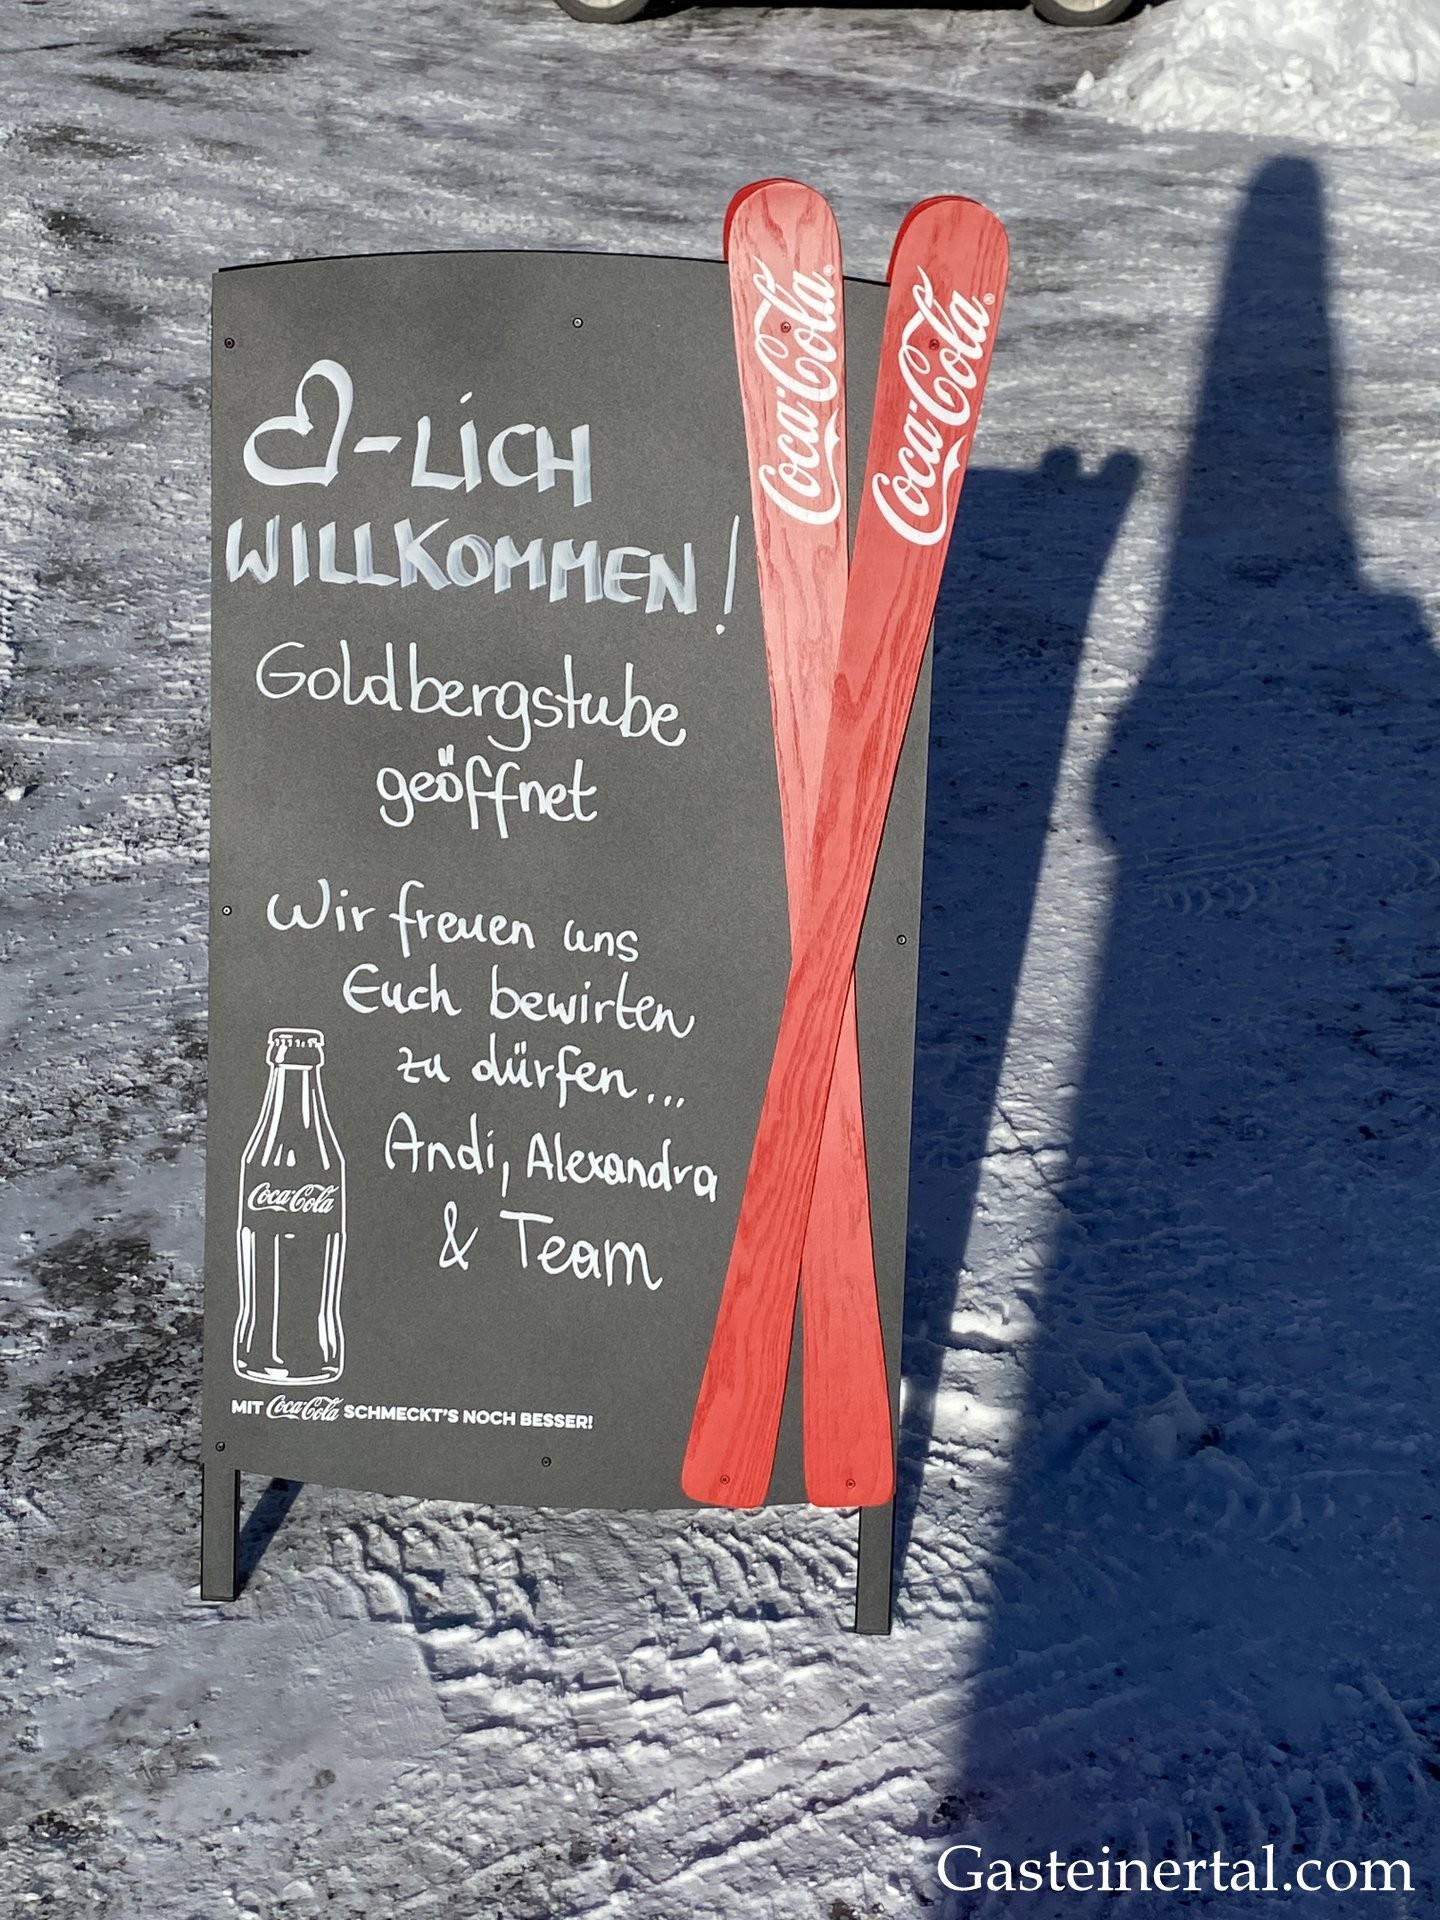 ♡-LICH
WILLKOMMEN!
Goldbergstube
geöffnet
Wir freuen uns
Euch bewirten
zu dürfen...
Andi, Alexandra
& Team
Coca-Cola
MIT Coca-Cola SCHMECKT'S NOCH BESSER!
Coca-Cola®
Coca-Cola®
Gasteinertal.com